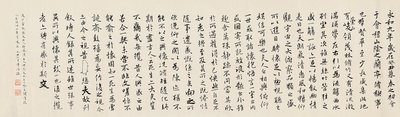 永和九年歲在癸丑暮春之初會
于會稽山陰之蘭亭脩稧事
也羣賢畢至少長咸集此地有崇山
峻領茂林脩竹又有清流激
湍暎帶左右引以為流觴曲水
列坐其次雖無絲竹管弦之
盛一觴一詠亦足以暢敘幽情
是日也天朗氣清惠風和暢仰
觀宇宙之大俯察品類之盛
所以遊目騁懷足以極視聽之
娛信可樂也夫人之相與俯仰
一世或取諸懷抱悟言一室之內
或因寄所託放浪形骸之外雖
趣舍萬殊靜躁不同當其欣
於所遇暫得於己怏然自足不
知老之將至及其所之既惓情
隨事遷感慨係之矣向之所
欣俛仰之閒以為陳迹猶不
能不以之興懷況脩短隨化終
期於盡古人云死生亦大矣豈
不痛哉每攬昔人興感之由
若合一契未嘗不臨文嗟悼不
能喻之於懷固知一死生為虛
誕齊彭殤為妄作後之視今
亦由今之視昔悲夫故列
敘時人錄其所述雖世殊事
異所以興懷其致一也後之攬
者亦將有感於斯文